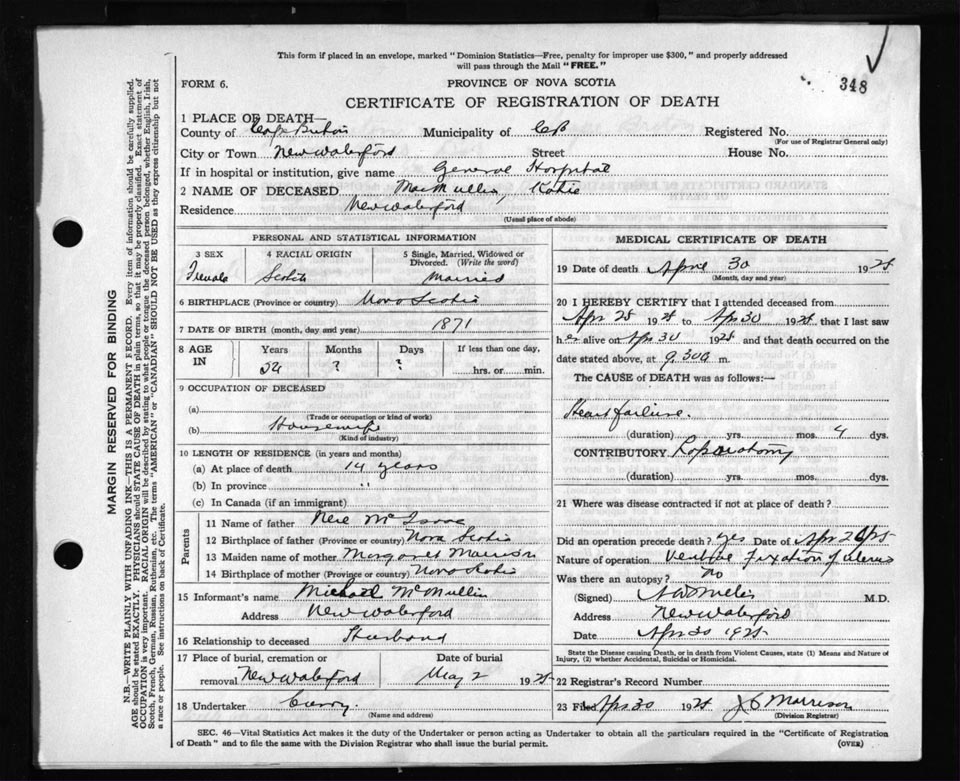 This form if placed in an envelope, marked "Dominion Statistics—Free, penalty for improper use $300," and properly addressed
will pass through the Mail "FREE."
348
FORM 6.
PROVINCE OF NOVA SCOTIA
CERTIFICATE OF REGISTRATION OF DEATH
1 PLACE OF DEATH—
County of Cape Breton Municipality of CB Registered No.
(For use of Registrar General only)
City or Town New Waterford Street House No.
If in hospital or institution, give name General Hospital
2 NAME OF DECEASED MacMullin, Katie
Residence New Waterford
(Usual place of abode)
PERSONAL AND STATISTICAL INFORMATION
3 SEX 4 RACIAL ORIGIN 5 Single, Married, Widowed or Divorced. (Write the word)
Female Scotch Married
6 BIRTHPLACE (Province or country) Nova Scotia
7 DATE OF BIRTH (month, day and year) 1871
8 AGE IN Years Months Days If less than one day,
54 ? ? hrs. or min.
9 OCCUPATION OF DECEASED
(a)
(Trade or occupation or kind of work)
(b) Housewife
(Kind of industry)
10 LENGTH OF RESIDENCE (in years and months)
(a) At place of death 14 years
(b) In province "
(c) In Canada (if an immigrant)
Parents
11 Name of father McIsaac
12 Birthplace of father (Province or country) Nova Scotia
13 Maiden name of mother Margaret Morrison
14 Birthplace of mother (Province or country) Nova Scotia
15 Informant's name Michael McMullin
Address New Waterford
16 Relationship to deceased Husband
17 Place of burial, cremation or Date of burial
removal New Waterford May 2 1925
18 Undertaker Curry
(Name and address)
MEDICAL CERTIFICATE OF DEATH
19 Date of death April 30 1925
(Month, day and year)
20 I HEREBY CERTIFY that I attended deceased from
Apr 25 1925 to Apr 30 1925, that I last saw
her alive on Apr 30 1925 and that death occurred on the
date stated above, at 9.30a m.
The CAUSE of DEATH was as follows:—
Heart failure.
(duration) yrs. mos. 4 dys.
CONTRIBUTORY Laparotomy
(duration) yrs. mos. dys.
21 Where was disease contracted if not at place of death?
Did an operation precede death? yes Date of Apr
Nature of operation Ventral fixation of uterus
Was there an autopsy? no
(Signed) M.D.
Address New Waterford
Date Apr 30 1925
State the Disease causing Death, or in death from Violent Causes, state (1) Means and Nature of
Injury, (2) whether Accidental, Suicidal or Homicidal.
22 Registrar's Record Number
23 Filed Apr 30 1925 J C Morrison
(Division Registrar)
SEC. 46—Vital Statistics Act makes it the duty of the Undertaker or person acting as Undertaker to obtain all the particulars required in the "Certificate of Registration
of Death" and to file the same with the Division Registrar who shall issue the burial permit.
(OVER)
MARGIN RESERVED FOR BINDING
N.B.—WRITE PLAINLY WITH UNFADING INK—THIS IS A PERMANENT RECORD. Every item of information should be carefully supplied.
AGE should be stated EXACTLY. PHYSICIANS should STATE CAUSE OF DEATH in plain terms, so that it may be properly classified. Exact statement of
OCCUPATION is very important. RACIAL ORIGIN will be described by stating to what people or tongue the deceased person belonged, whether English, Irish,
Scotch, French, German, Russian, Ruthenian, etc. The terms "AMERICAN" or "CANADIAN" SHOULD NOT BE USED as they express citizenship but not
a race or people. See instructions on back of Certificate.